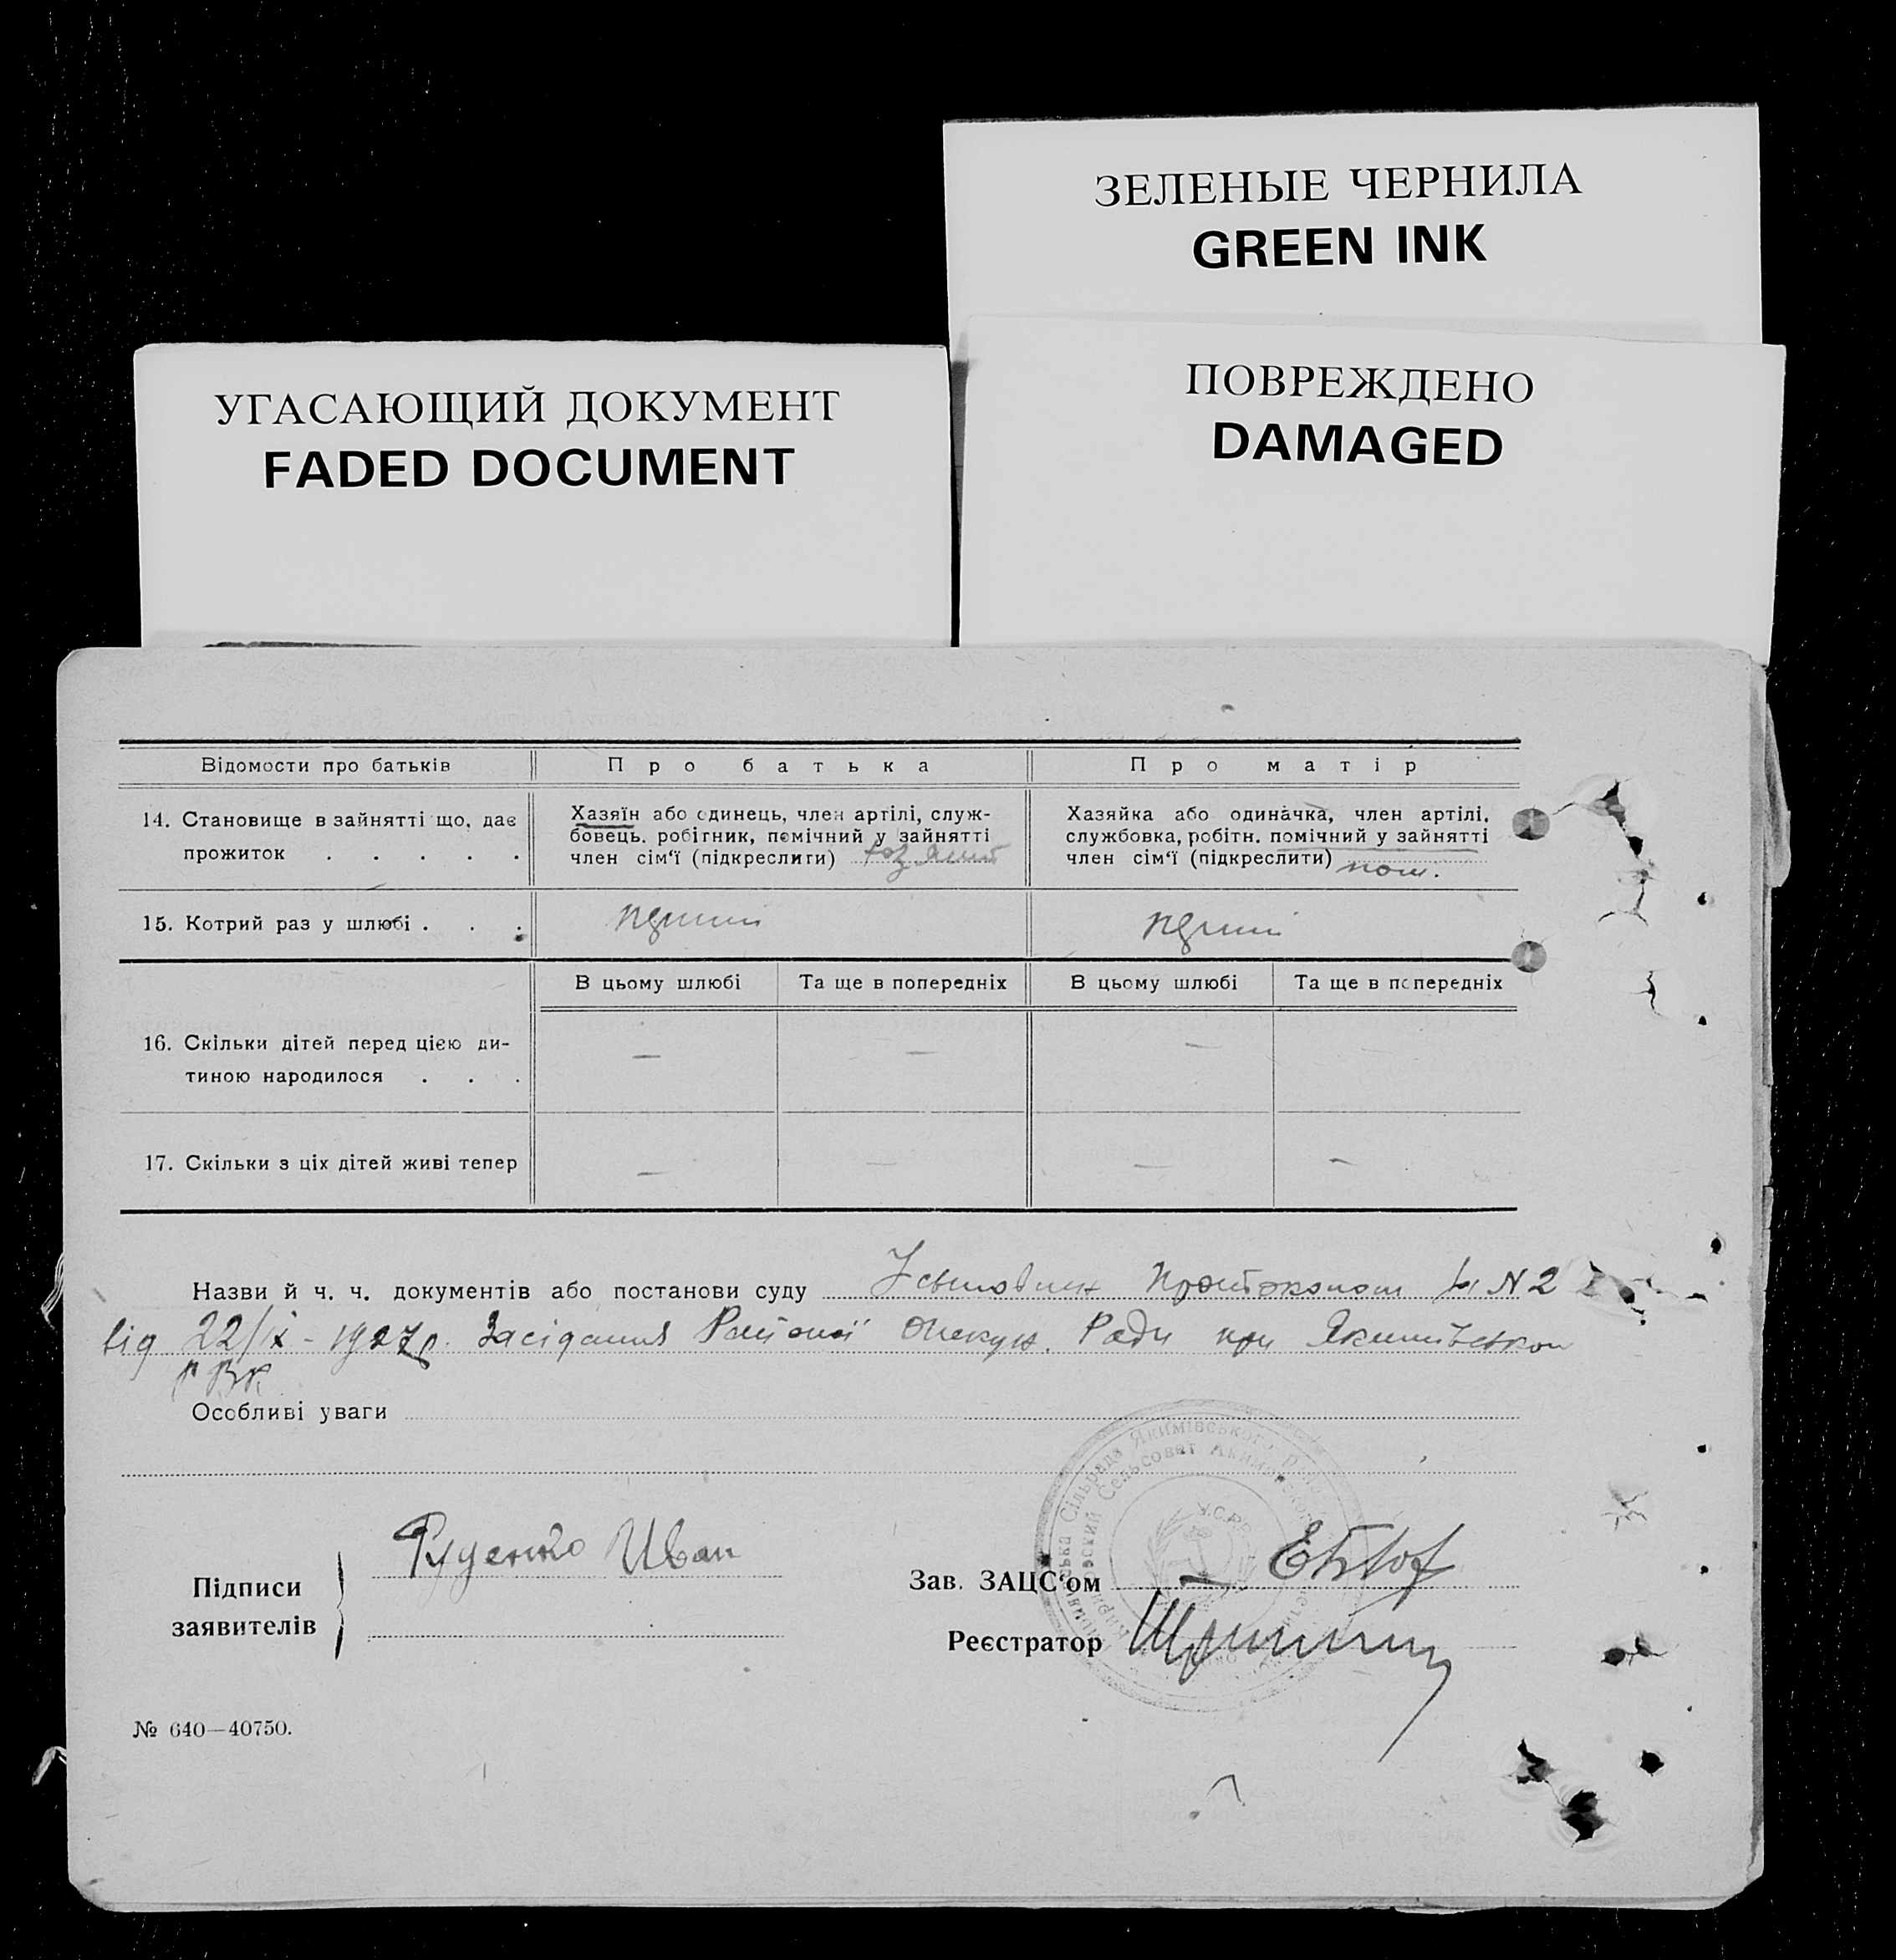 ЗЕЛЕНЫЕ ЧЕРНИЛА
GREEN INK
УГАСАЮЩИЙ ДОКУМЕНТ
FADED DOCUMENT
ПОВРЕЖДЕНО
DAMAGED
Відомости про батьків Про батька Про матір
14. Становище в зайнятті що, дає прожиток . . . . .
Хазяїн або одинець, член артілі, служ-
бовець. робітник, помічний у зайнятті
член сім‘ї (підкреслити)
Хазяйка або одиначка, член артілі,
службовка, робітн. помічний у зайнятті
член сім‘ї (підкреслити) пом.
15. Котрий раз у шлюбі . . .
В цьому шлюбі Та ще в попередніх В цьому шлюбі Та ще в попередніх
16. Скільки дітей перед цією ди-
тиною народилося . . .
— — —
17. Скільки з ціх дітей живі тепер
— — — —
Назви й ч. ч. документів або постанови суду Протоколом N 2
від 22/ІХ - 1927р. Засідання Районої Опекун. Ради при
РВК
Особливі уваги
Сільрада Якимівського
Сельсовет
У.С.Р.Р.
Підписи
заявителів
Руденко Иван
Зав. ЗАЦС‘ом
Реєстратор
№ 640—40750.